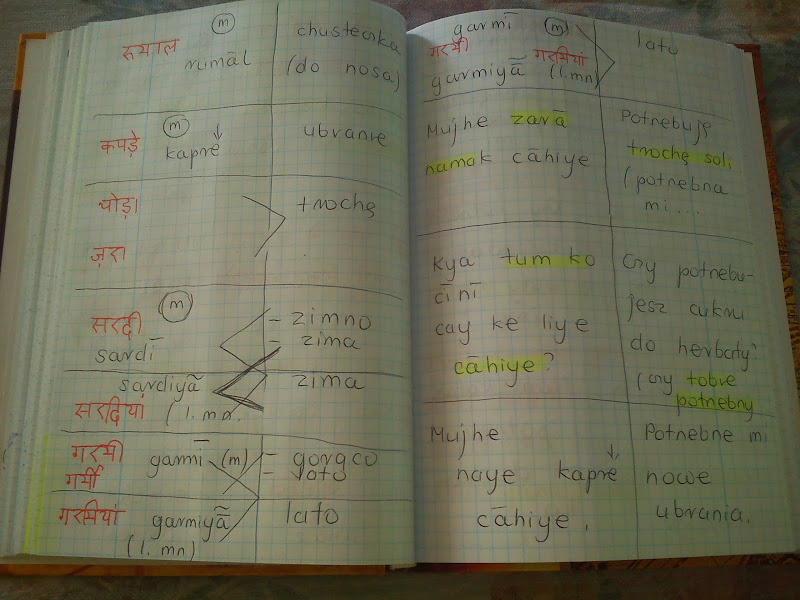 रुमाल (m) chusteczka
rumāl (do nosa)
कपड़े (m) ubranie
kapṛe
थोड़ा trochę
ज़रा
सरदी (m) = zimno
sardī = zima
sardiyā̃ zima
सरदियां (l. mn.
गरमी garmī (m) = gorąco
गर्मी = lato
गरमियां garmiyā̃ lato
(l. mn)
garmī (m) lato
गरमी गरमियां
garmiyā̃ (l. mn)
Mujhe zarā Potrzebuję
namak cāhiye trochę soli
(potrzebna
mi ...
Kya tum ko Czy potrzebu-
cīnī jesz cukru
cay ke liye do herbaty?
cāhiye? (czy tobie
potrzebny
Mujhe Potrzebne mi
naye kapṛe nowe
cāhiye. ubrania.